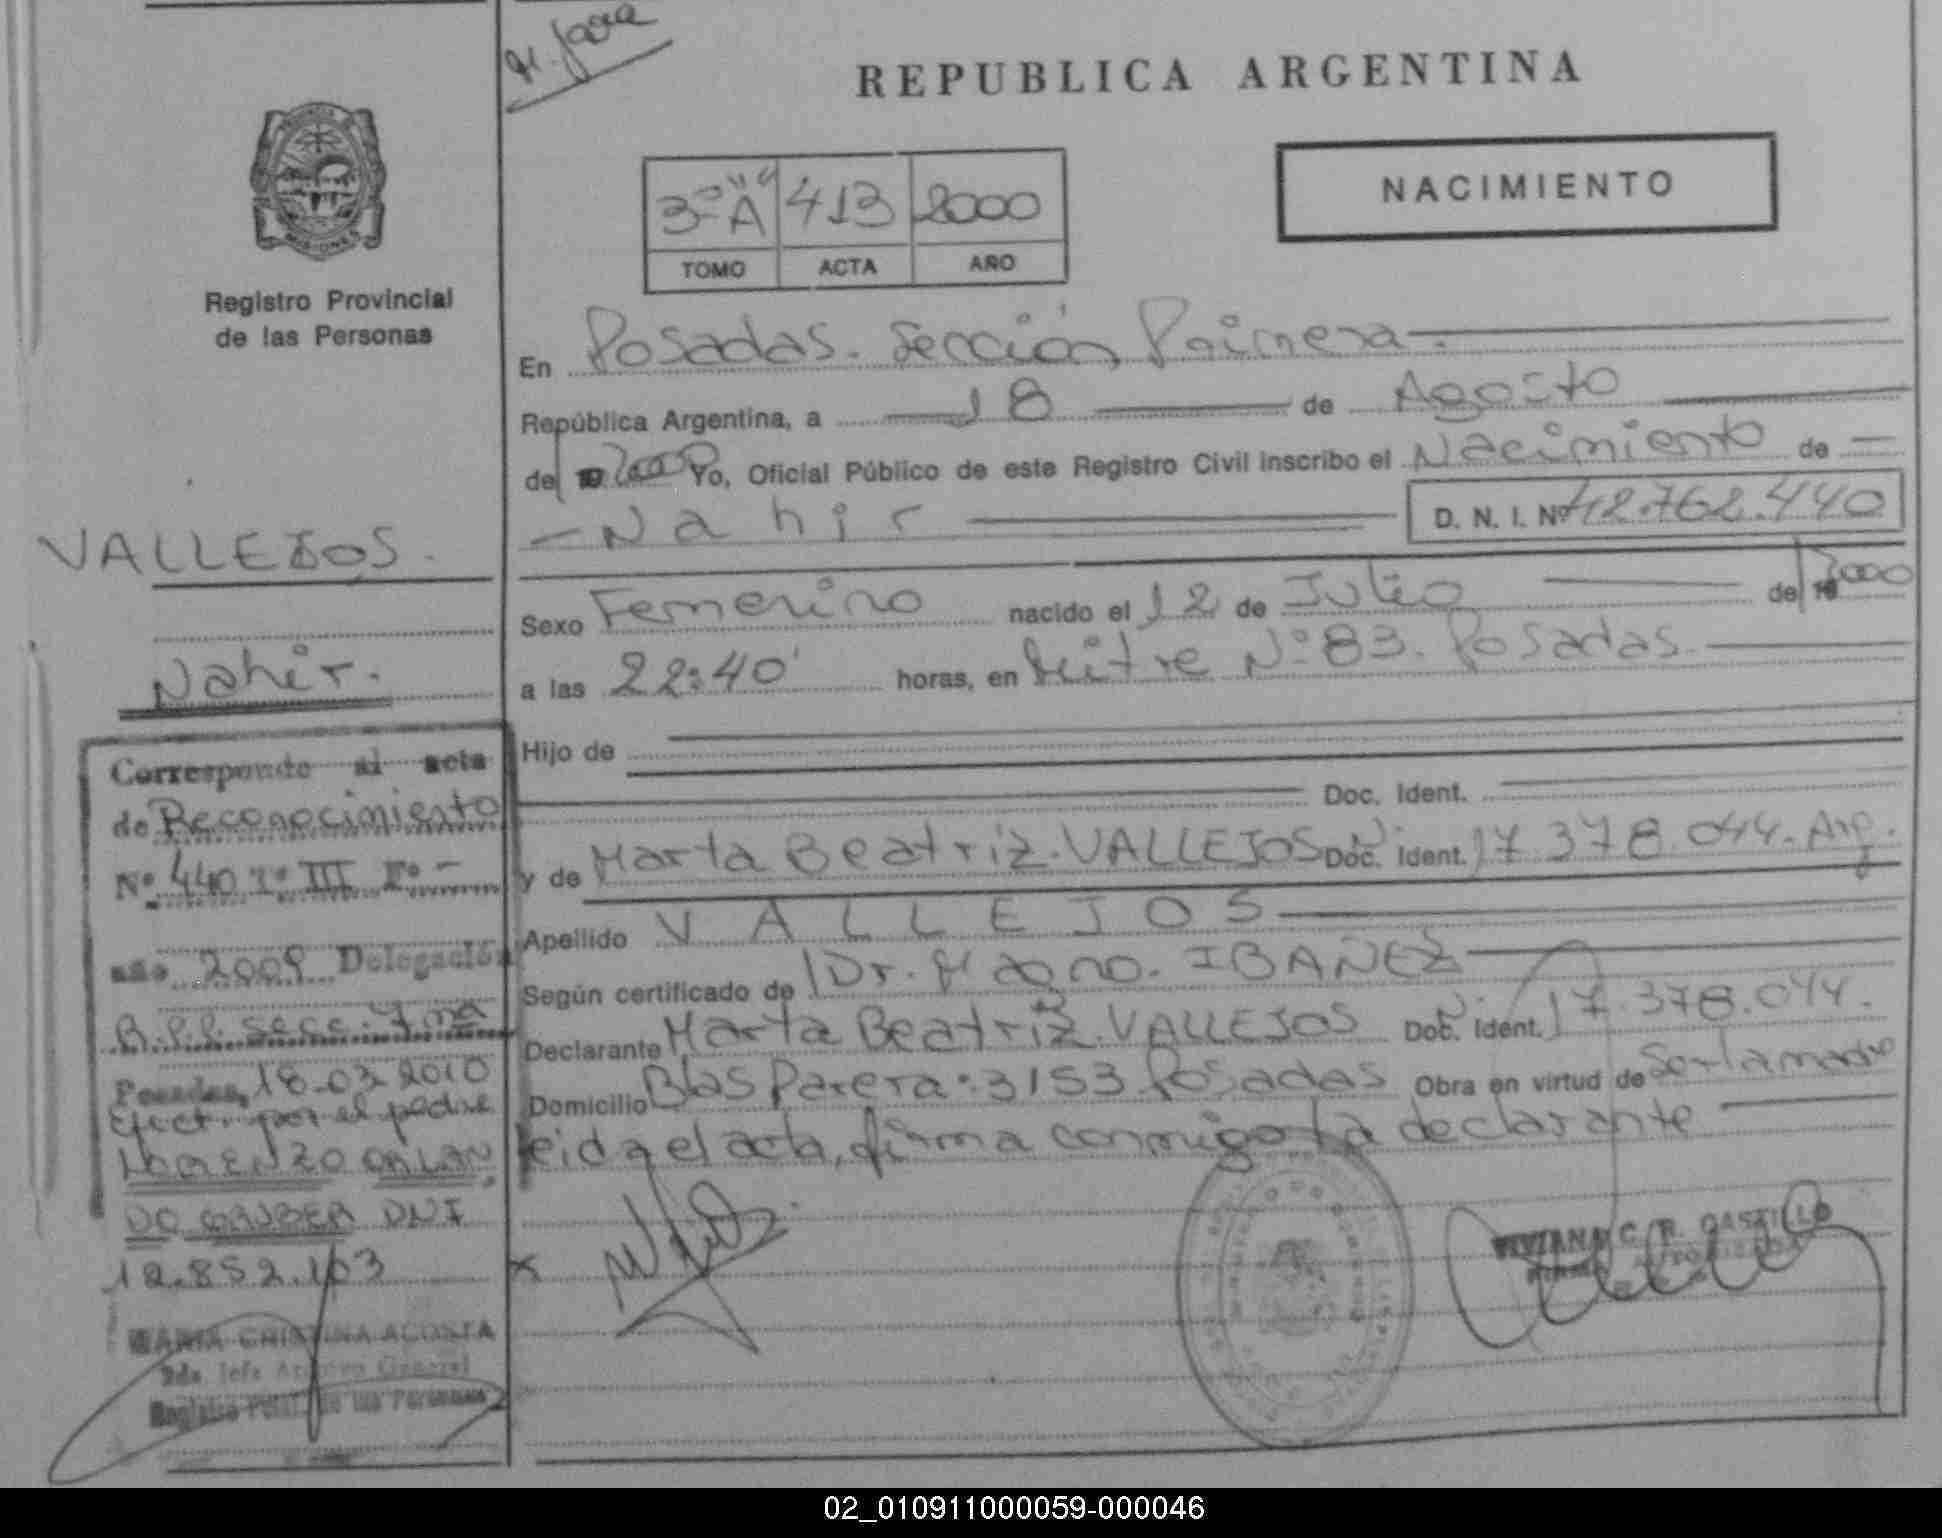 REPUBLICA ARGENTINA
NACIMIENTO
3º "A" 413 2000
TOMO ACTA AÑO
MISIONES
Registro Provincial
de las Personas
En Posadas. Sección Primera.
República Argentina, a 18 de Agosto
de 2000 Yo, Oficial Público de este Registro Civil inscribo el Nacimiento de
Nahir D. N. I. Nº 42.762.440
Sexo Femenino nacido el 12 de Julio de 2000
a las 22:40' horas, en Mitre Nº 83. Posadas
Hijo de
Doc. Ident.
y de Marta Beatriz. VALLEJOS Doc. Ident. 17.378.044. Arg.
Apellido VALLEJOS
Según certificado de Dr. IBAÑEZ
Declarante Marta Beatriz. VALLEJOS Doc. Ident. 17.378.044.
Domicilio Blas Parera. 3153 Posadas Obra en virtud de Ser la madre
leida el acta, firma conmigo la declarante
VIVIANA C. R. CASTILLO
VALLEJOS.
Nahir.
Corresponde al acta
de Reconocimiento
Nº 440 Tº III Fº -
año 2009 Delegación
R.P.P. Secc. 7ma
Posadas, 18-03-2010
Efect. por el padre
LORENZO ORLAN
DO GRUBER DNI
12.852.103
MARIA CRISTINA ACOSTA
2da. Jefe Archivo General
Registro Pcial. de las Personas
02_010911000059-000046